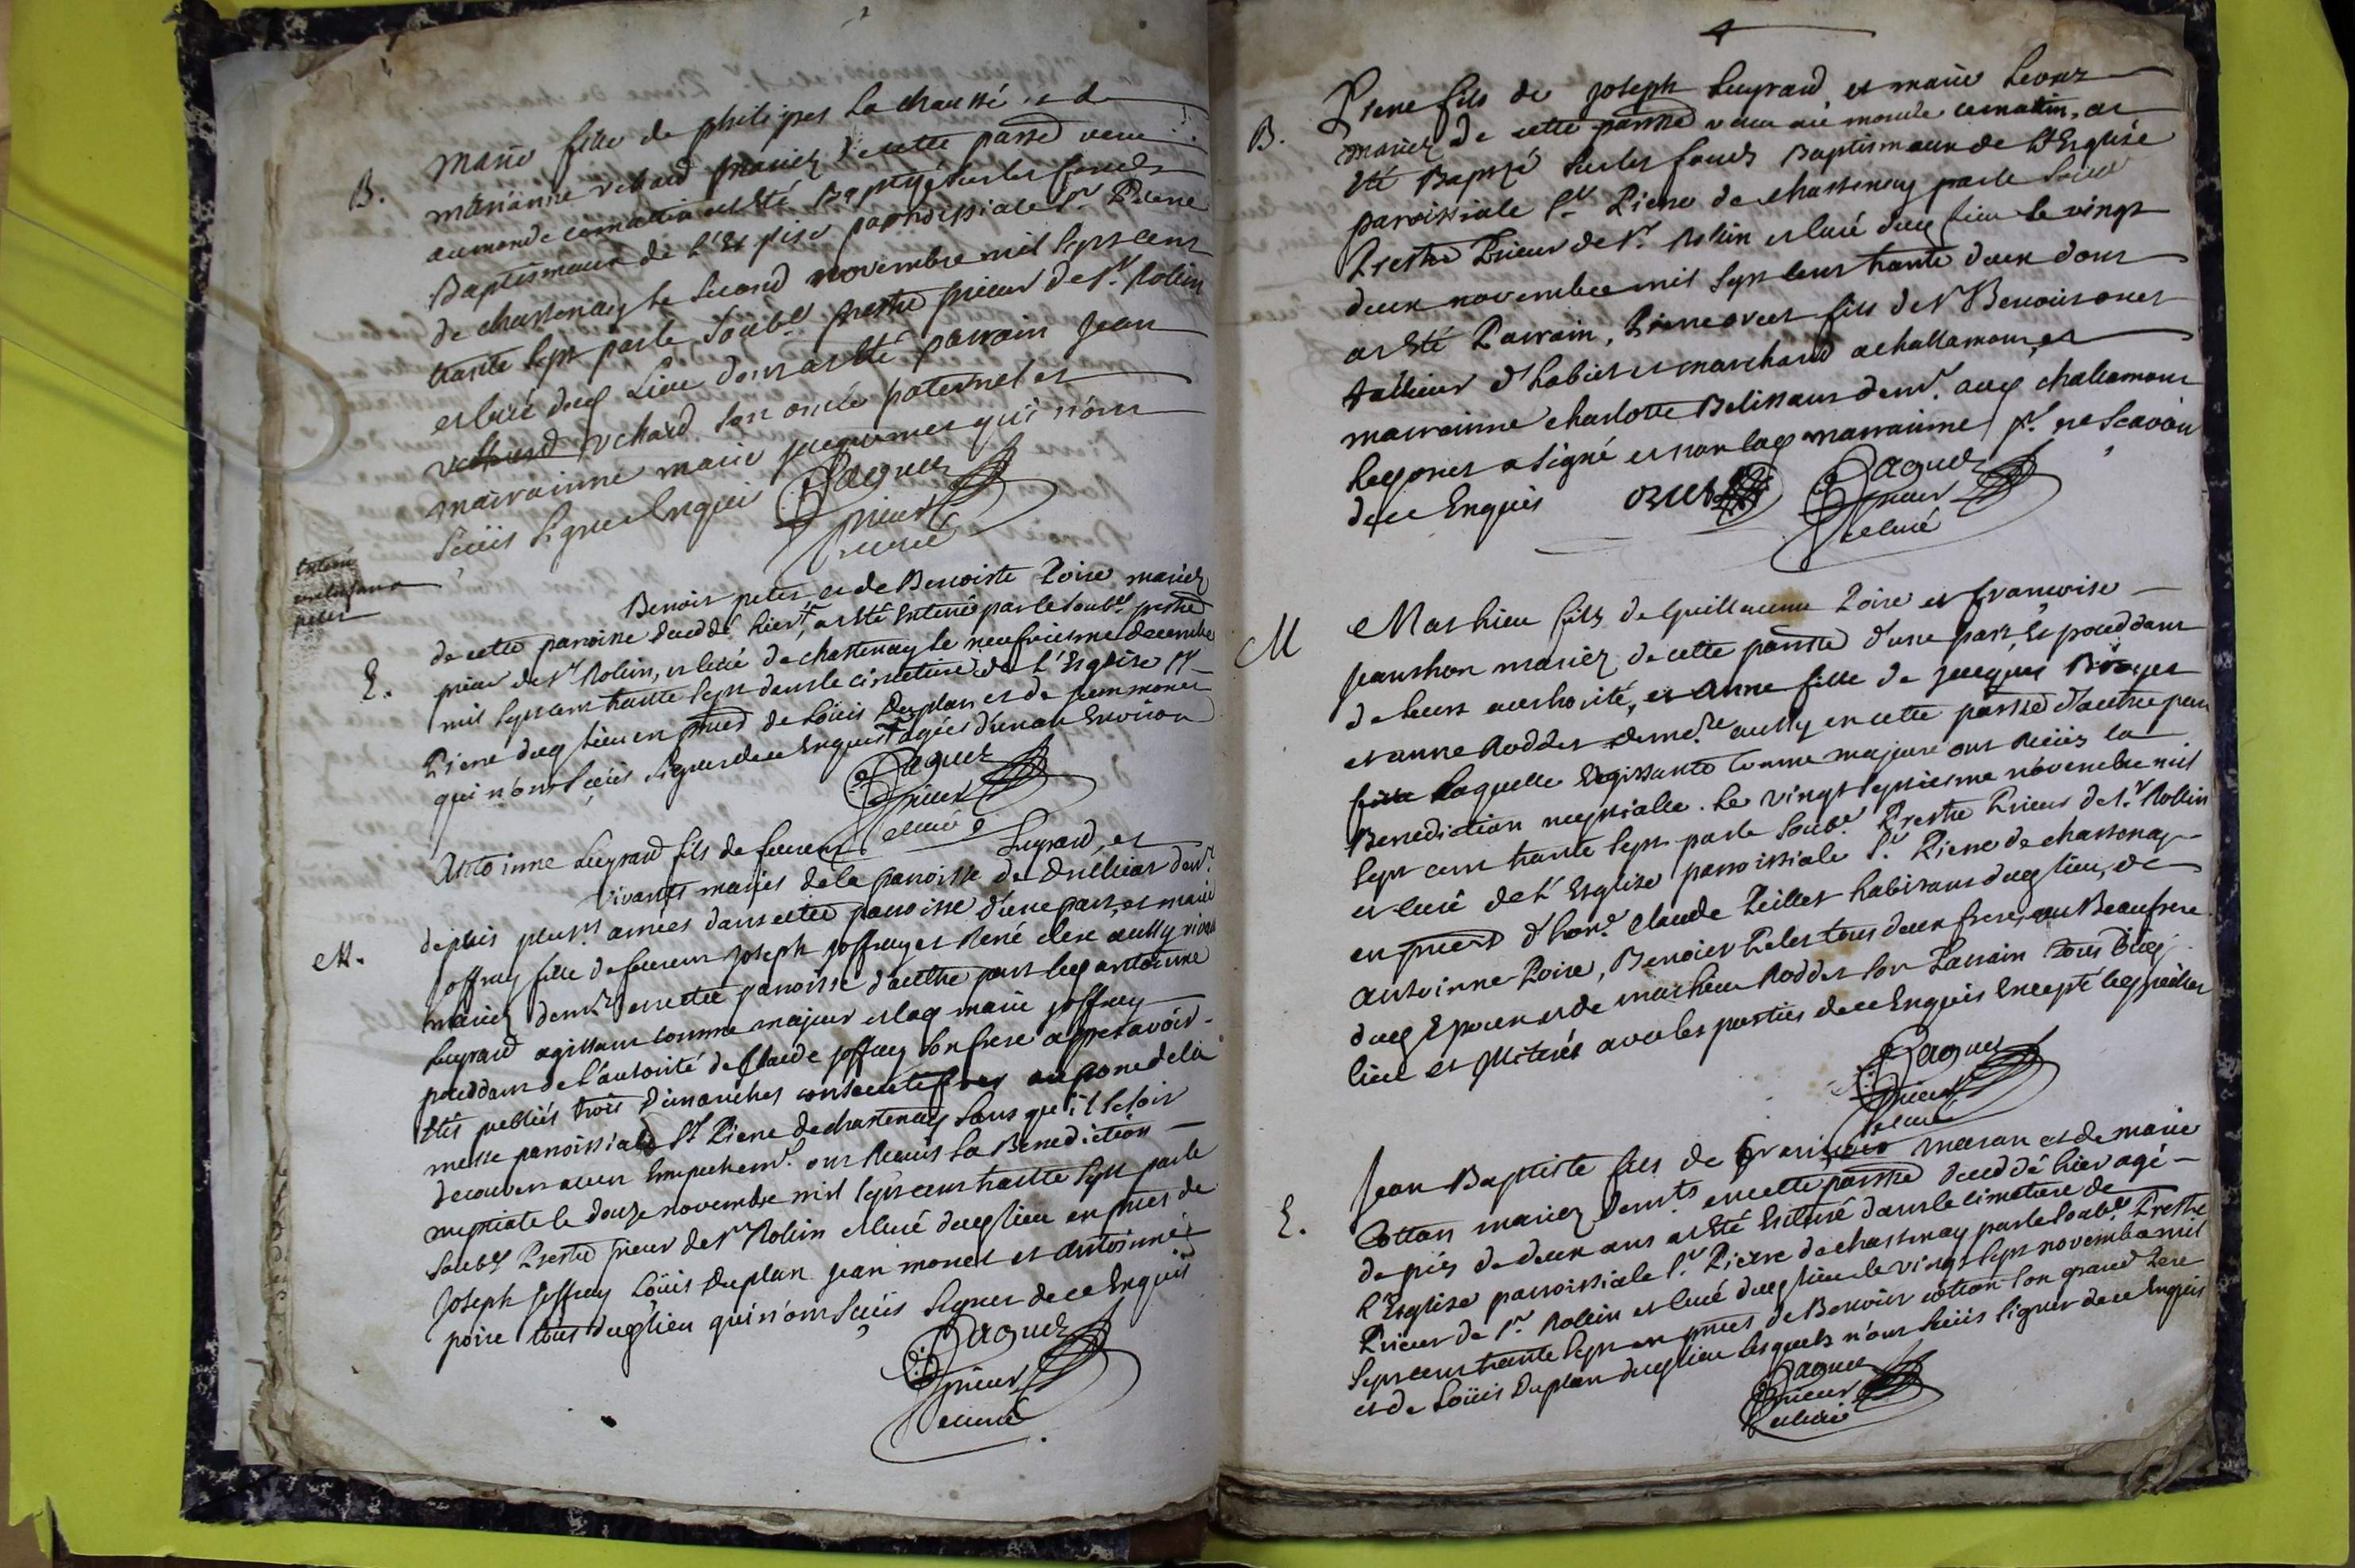 B.
Marie fille de philipes La chaussé et de
marianne richard mariez de cette parsse venue
aumonde cematin at été Baptisé sur les fonds
Baptismaux de l'Eglise parroissiale St. Pierre
de chastenay le second novembre mil sept cent
trante sept par le soubs.é prestre prieur de St. Rolin
et curé dud lieu dont at été parrain Jean
richard son oncle paternel et
marrainne marie jacquemet qui n'ont
sceüs signer Enquis
Paquez
prieur
et curé
Enterré
enfant a
peter
E.
Benoit peter et de Benoiste Poire mariez
de cette paroisse decedé hiert, at été Enterré par le soubs.é prestre
prieur de St Rolin, et curé de chastenay le neufviesme decembre
mil sept cent trante sept dans le cimetiere de l'Esglise St
Pierre dud lieu en pnces de Loüis Duplan et de jean monet
qui n'ont sceüs signer de ce Enquis agée d'un an Environ
Paquez
prieur
et curé
M.
Antoinne Lugrand fils de feu Lugrand, et
vivants mariés de la parroisse de Druilliat dem.t
depuis plus.rs années dans cette paroisse d'une part, et marie
joffray fille de feu Joseph joffray et René clerc aussy vivants
mariez dem.ts en cette paroisse d'aultre part led antoinne
Lugrand agissant comme majeur et lad marie joffray
proceddant de l'autorité de Claude joffray son frere apres avoir
étés publiés trois dimanches consecutifves au prone de la
messe parroissiale St Pierre de chastenay sans qu'il se soit
decouvert aucun Empechem.t ont Receüs la Benediction
nuptiale le douze novembre mil sept cent trante sept par le
soubs.é Prestre prieur de St Rolin et curé dud lieu en pnces de
Joseph joffray Loüis Duplan jean monet et Antoinne
poire tous dud lieu qui n'ont sceüs signer de ce Enquis
Paquez
prieur
et curé
4
B.
Pierre fils de joseph Lugrand et marie Levrat
mariez de cette parsse venu au monde cematin, at
été Baptzé sur les fonds Baptismaux de L'Esglise
paroissiale St. Pierre de chastenay par le soubs.é
Prestre Prieur de St. Rolin et curé dud lieu le vingt
deux novembre mil sept cent trante deux dont
at été Parrain, Pierre orcet fils de Sr Benoist orcet
tallieur d'habits et marchand a challamont, et
marrainne charlotte Belissant dem.t aud challamont
led orcet a signé et non lad marrainne pr. ne scavoir
de ce Enquis
orcet
Paquez
prieur
et curé
M
Mathieu fils de Guillaume Poire et francoise
jeanthon mariez de cette parsse d'une part, Et proceddant
de leurs authorité, et Anne fille de jacques Broyer
et anne Roddet dem.ts aussy en cette parsse d'autre part
laquelle Agissante comme majeure ont Receüs la
Benediction nuptialle. Le vingt septiesme novembre mil
sept cent trante sept par le soub.é Prestre Prieur de St. Rollin
et curé de l'Esglise parroissiale St. Pierre de chastenay
en pnces d'hon.e Claude Peillet habitant dud lieu, de
Antoinne Poire, Benoist Peter tous deux frere, ou Beaufrere
dud Epoux et de mathieu Roddet son Parrain tous dud
lieu et illiterés avec les parties de ce Enquis Excepté led peillet
Paquez
prieur
et curé
E.
Jean Baptiste fils de francois maran et de marie
Cottan mariez dem.ts en cette parsse deceddé hier agé
depuis de deux ans at été Enterré dans le cimetiere de
L'Esglise parroissiale St. Pierre de chastenay par le soub.é Prestre
Prieur de St. Rollin et curé dud lieu le vingt sept novembre mil
sept cent trante sept en pnces de Benoist cottan son grand Pere
et de Loüis Duplan dud lieu lesquels n'ont sceüs signer de ce Enquis
Paquez
prieur
et curé